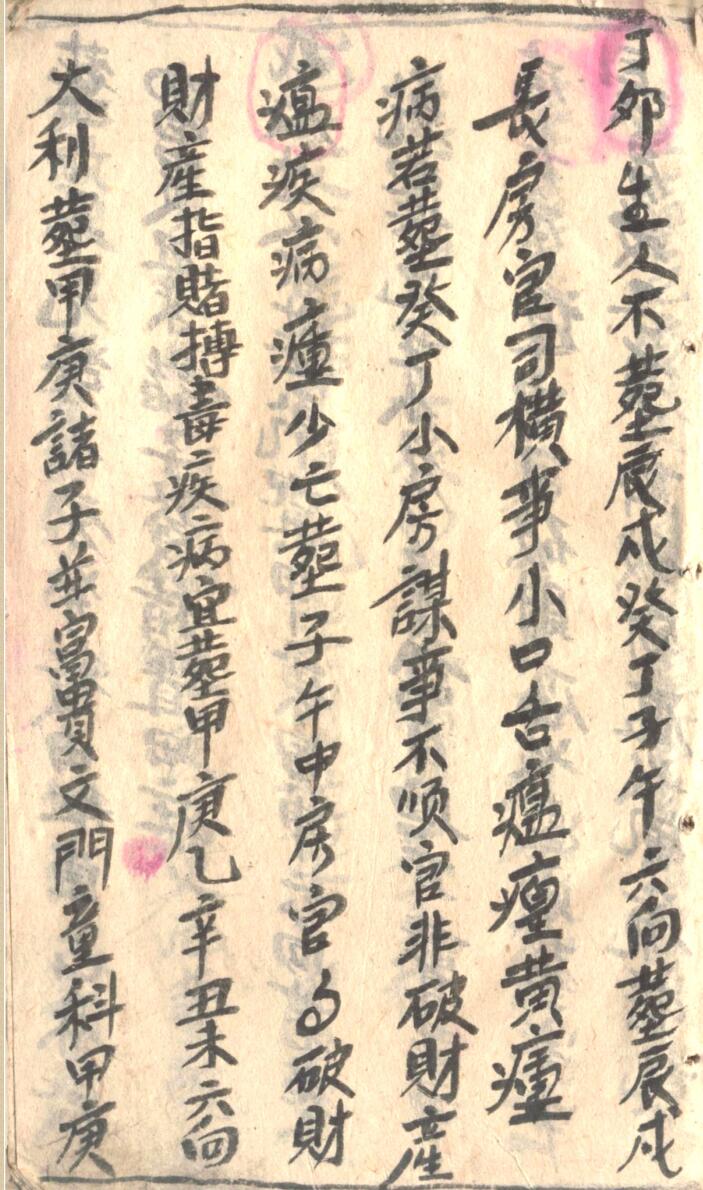 丁卯生人不塟辰戌癸丁子午六向塟辰戌
長房官司橫事小口舌瘟瘟黄瘇
病若塟癸丁小房謀事不顺官非破財產
瘟疾病瘇少亡塟子午中房官司破財
財產指賭摶毒疾病宜塟甲庚乙辛丑未六向
大利塟甲庚諸子並富貴文門童科甲庚